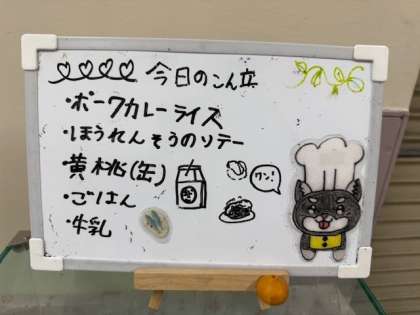 今日のこん立
・ポークカレーライス
・ほうれんそうのソテー
・黄桃(缶)
・ごはん
・牛乳
ワン!